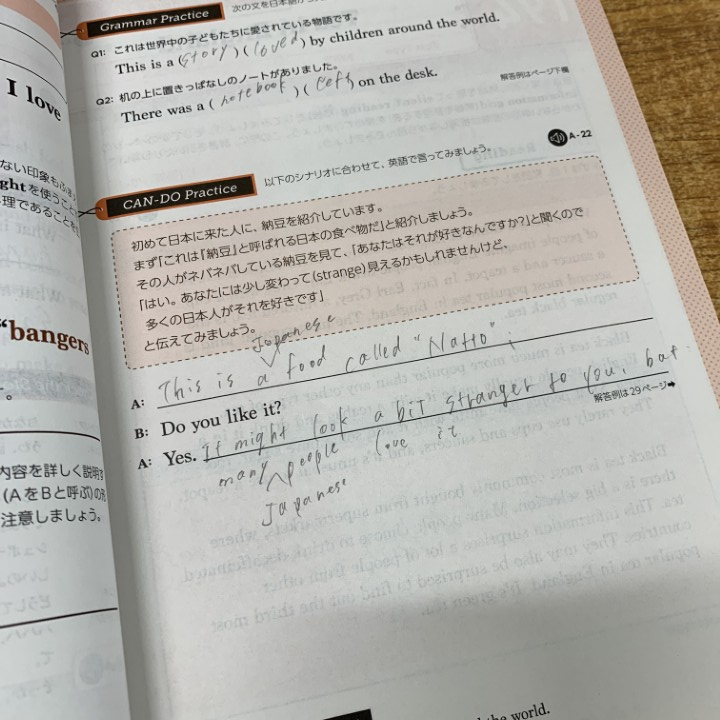 Grammar Practice
Q1: これは世界中の子どもたちに愛されている物語です。
This is a (story) (loved) by children around the world.
Q2: 机の上に置きっぱなしのノートがありました。
There was a (notebook) (left) on the desk.
解答例はページ下欄
I love
ない印象も
ghtを使うこ
理であること
"bangers
内容を詳しく説明す
(AをBと呼ぶ)の
注意しましょう。
A-22
CAN-DO Practice
以下のシナリオに合わせて、英語で言ってみましょう。
初めて日本に来た人に、納豆を紹介しています。
まず「これは「納豆」と呼ばれる日本の食べ物だ」と紹介しましょう。
その人がネバネバしている納豆を見て、「あなたはそれが好きなんですか?」と聞くので
「はい。あなたには少し変わって(strange)見えるかもしれませんけど、
多くの日本人がそれを好きです」
と伝えてみましょう。
Japanese
A: This is a food called "Natto".
B: Do you like it?
A: Yes. It might look a bit stranger to you, but
解答例は29ページ
many people love it
Japanese
the world.